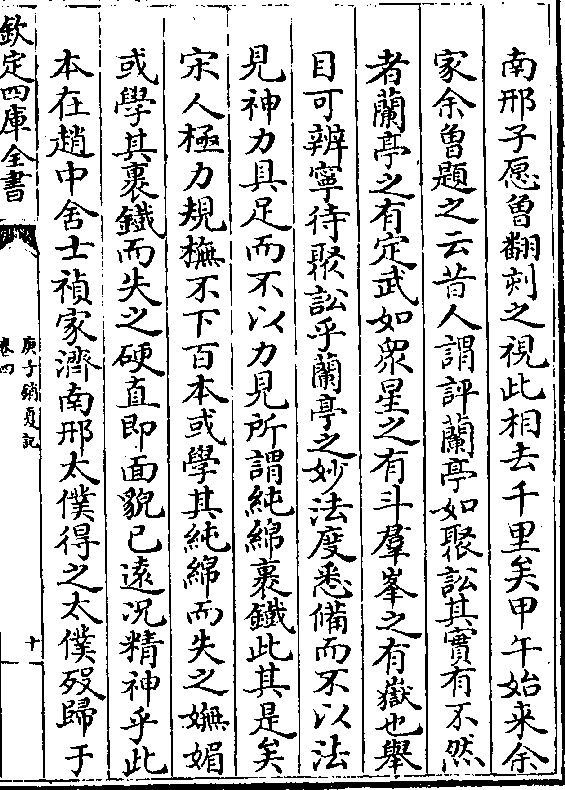 南邢子愿曽翻刻之視此相去千里矣甲午始来余
家余曽題之云昔人謂評蘭亭如聚訟其實有不然
者蘭亭之有定武如衆星之有斗羣峯之有嶽也舉
目可辨寧待聚訟乎蘭亭之妙法度悉備而不以法
見神力具足而不以力見所謂純綿裹鐡此其是矣
宋人極力規橅不下百本或學其純綿而失之嫵媚
或學其裹鐡而失之硬直即面貌已遠况精神乎此
本在趙中舍士禎家濟南邢太僕得之太僕殁歸于
欽定四庫全書
庚子銷夏記
卷四
十